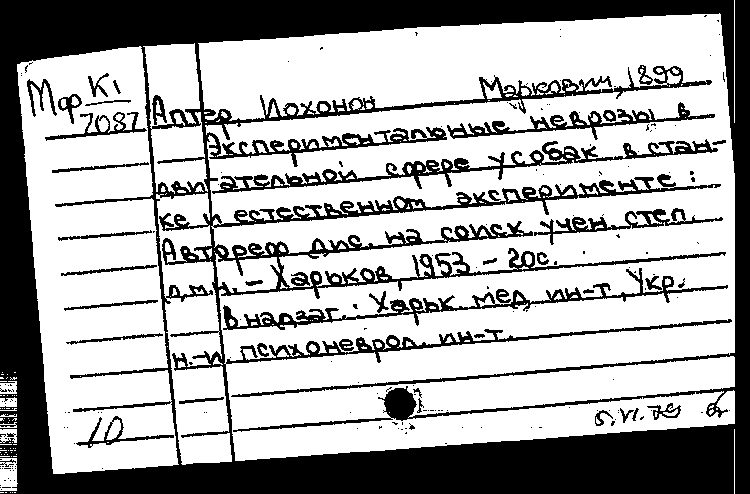 Мар К1
7087
Аптер, Иохонон Маркович, 1899
Экспериментальные неврозы в
двигательной сфере у собак в стан-
ке и естественном эксперименте :
Автореф дис. на соиск учен. степ.
д.м.н. – Харьков, 1953 – 20с.
В надзаг.: Харьк мед ин-т, Укр.
н.-и. психоневрол. ин-т.
10
5.VI.79